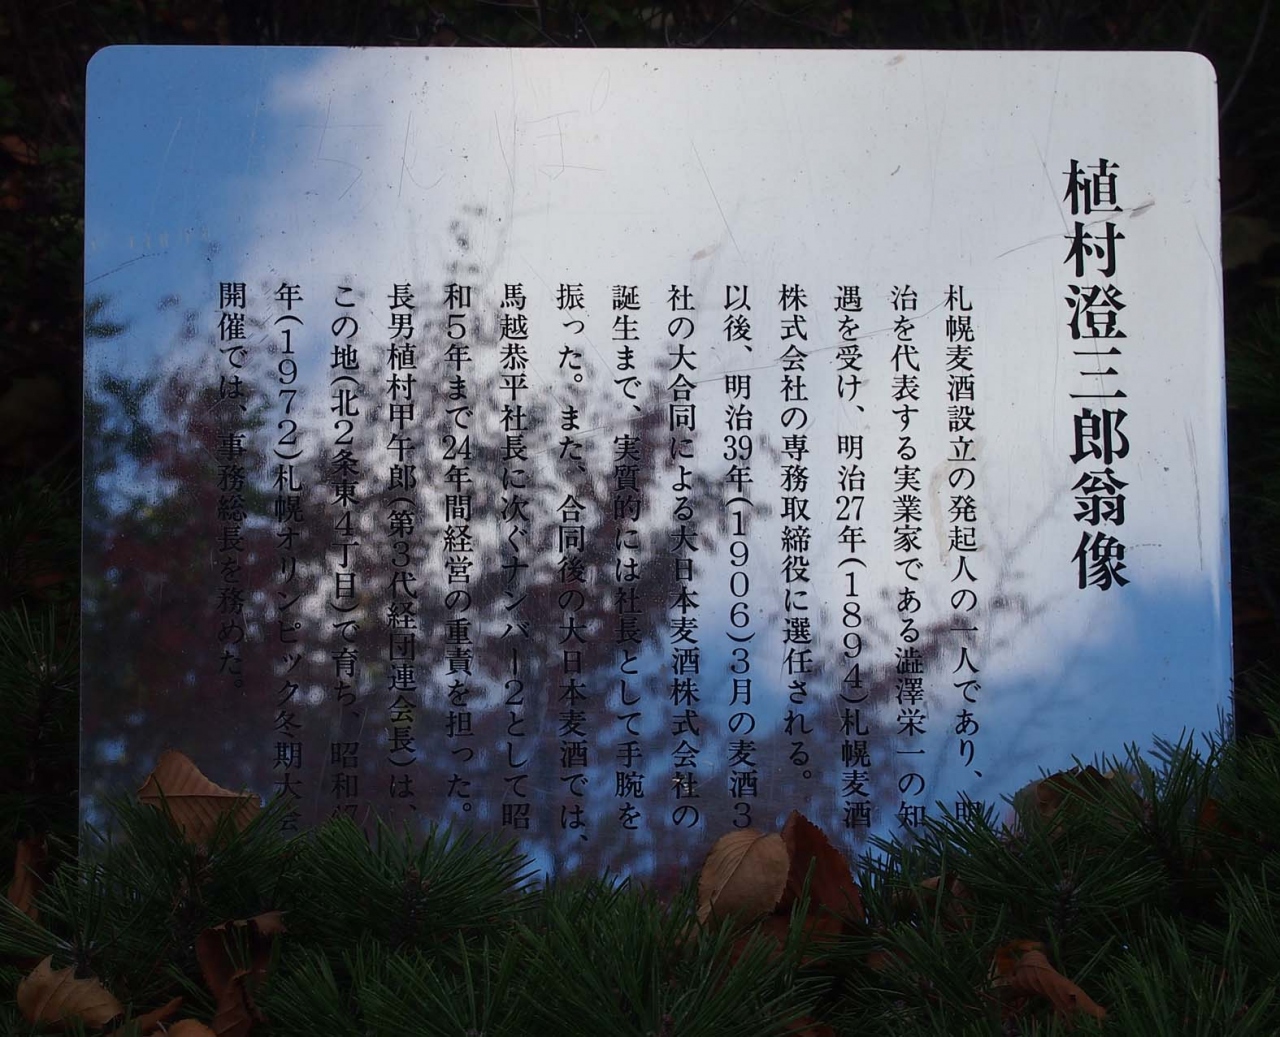 植村澄三郎翁像
札幌麦酒設立の発起人の一人であり、明
治を代表する実業家である澁澤栄一の知
遇を受け、明治27年(1894)札幌麦酒
株式会社の専務取締役に選任される。
以後、明治39年(1906)3月の麦酒3
社の大合同による大日本麦酒株式会社の
誕生まで、実質的には社長として手腕を
振った。また、合同後の大日本麦酒では、
馬越恭平社長に次ぐナンバー2として昭
和5年まで24年間経営の重責を担った。
長男植村甲午郎(第3代経団連会長)は、
この地(北2条東4丁目)で育ち、昭和47
年(1972)札幌オリンピック冬期大会
開催では、事務総長を務めた。